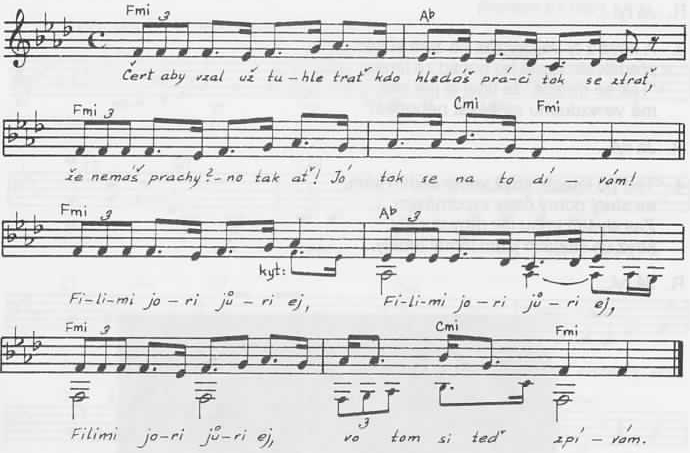 Fmi 3 Ab
Čert aby vzal už tu-hle trať kdo hledáš prá-ci tak se ztrať,
Fmi 3 Cmi Fmi
že nemáš prachy?-no tak ať! Jó tak se na to dí-vám!
Fmi 3 Ab 3
kyt:
Fi-li-mi jo-ri jů-ri ej, Fi-li-mi jo-ri jů-ri ej,
Fmi 3 Cmi Fmi
3
Filimi jo-ri jů-ri ej, vo tom si teď zpí-vám.